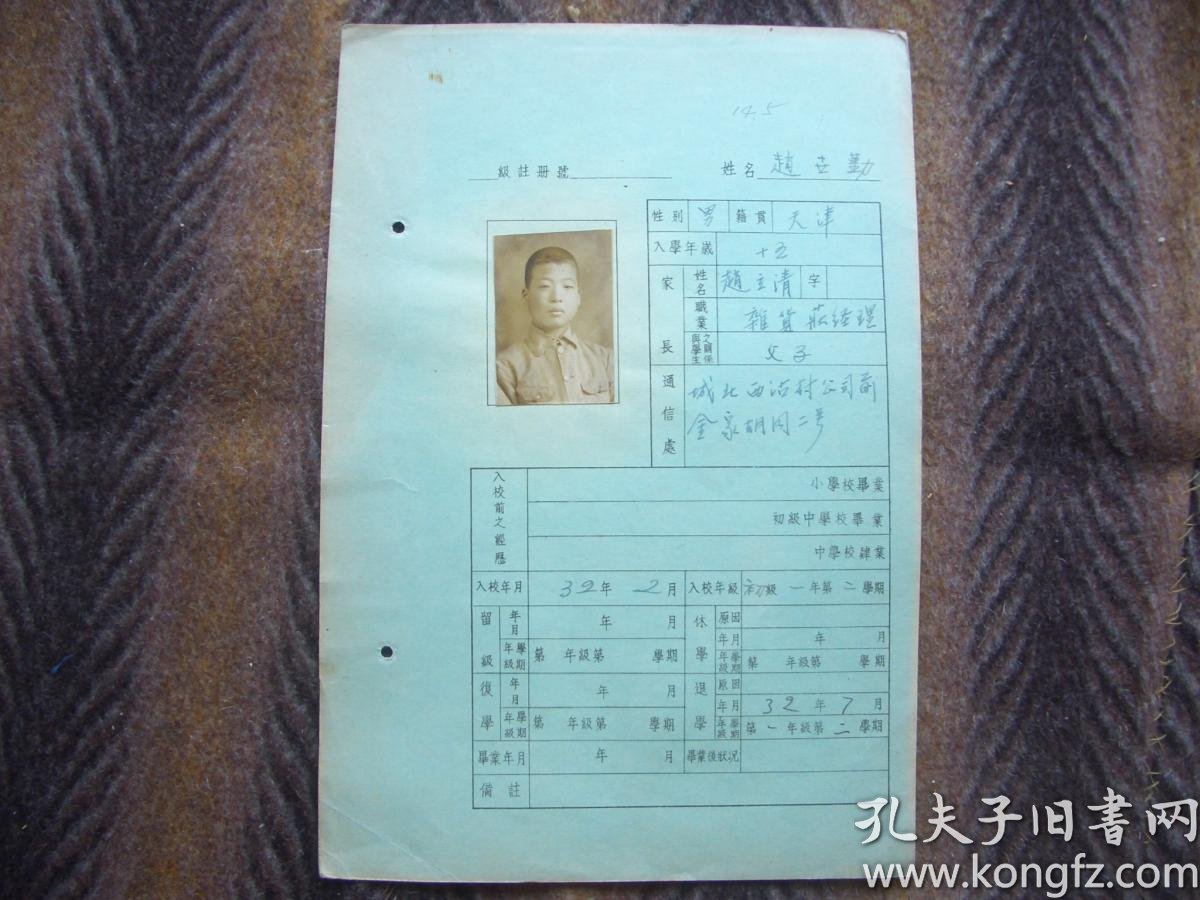 14.5
級註冊號 姓名 趙世勤
性別 男 籍貫 天津
入學年歲 十五
家長 姓名 趙立清 字
職業 雜貨莊經理
與學生之關係 父子
通信處 城北西沽村公司前
金家胡同二号
入校前之經歷 小學校畢業
初級中學校畢業
中學校肄業
入校年月 32年 2月 入校年級 初級一年第二學期
留級 年月 年 月 休學 原因
年月 年 月
年級學期 第 年級第 學期 年級學期 第 年級第 學期
復學 年月 年 月 退學 原因
年月 32年7月
年級學期 第 年級第 學期 年級學期 第一年級第二學期
畢業年月 年 月 畢業後狀况
備註
孔夫子旧書网
www.kongfz.com